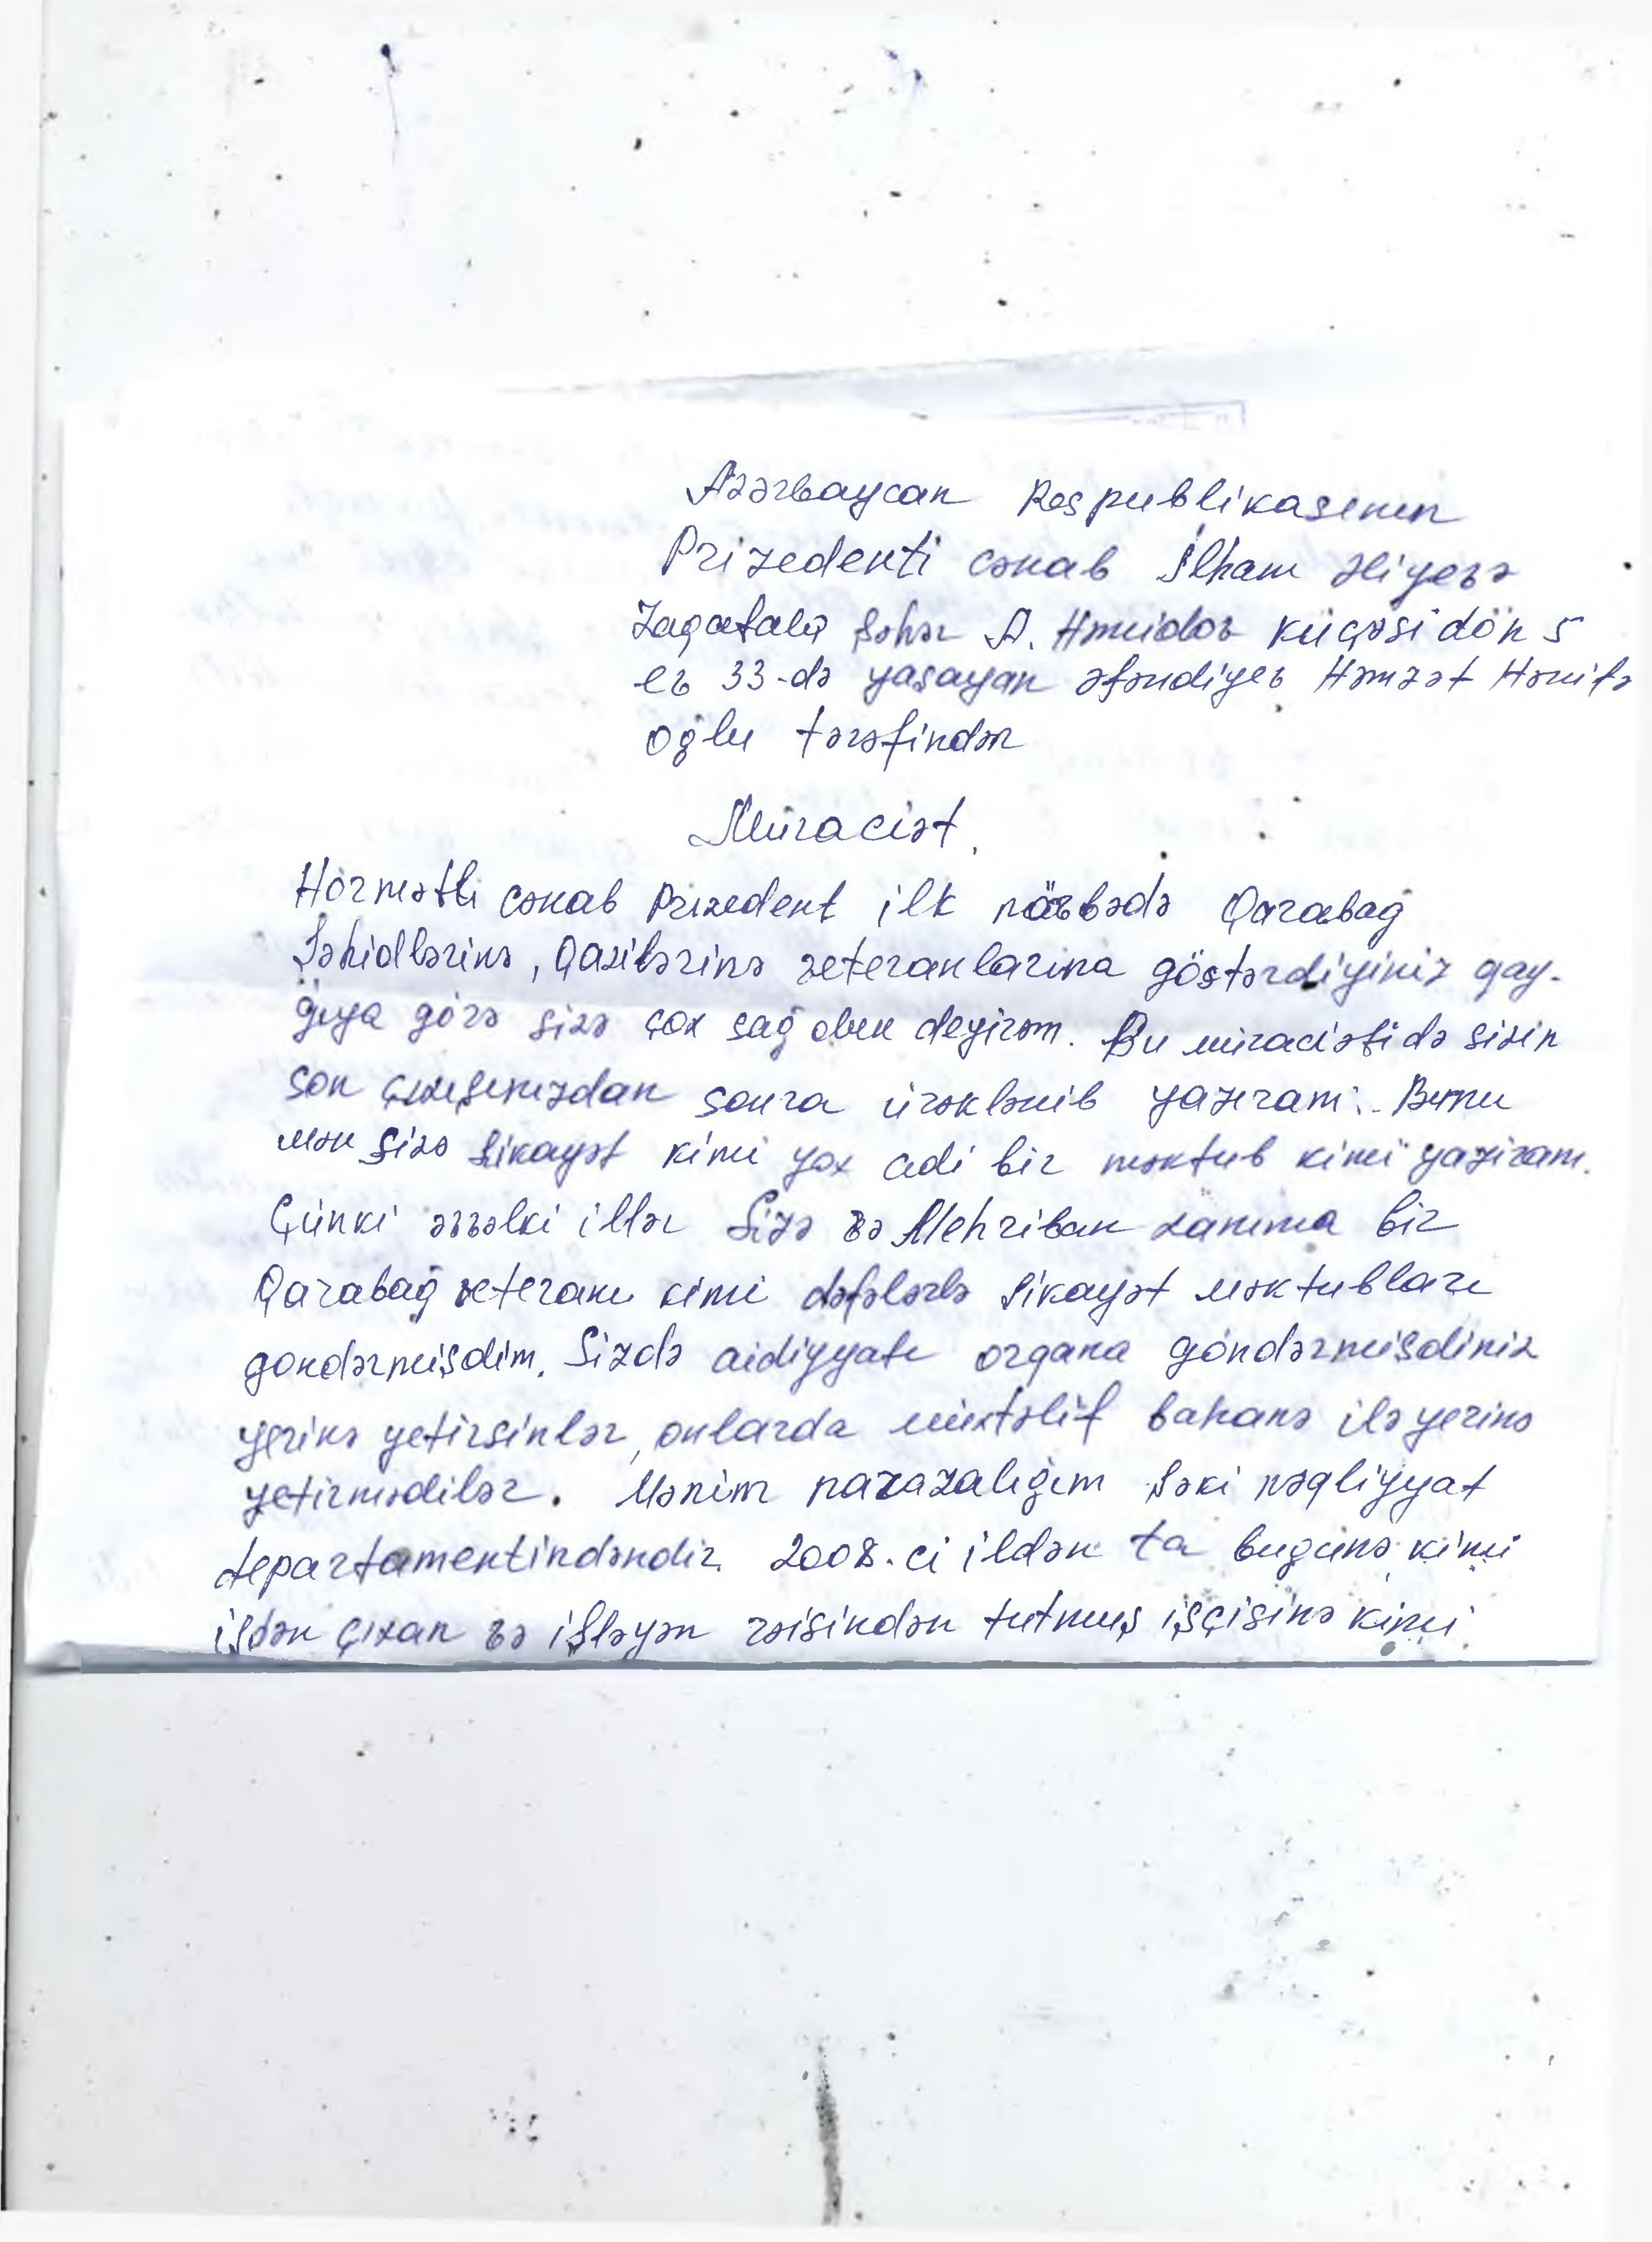 Azərbaycan Respublikasının
Prizedenti cənab İlham Əliyevə
Zaqatala şəhər A. Həmidov küçəsi dön 5
ev 33-də yaşayan Əfəndiyev Həmzət Hənifə
oğlu tərəfindən
Müraciət.
Hörmətli cənab Prizedent ilk növbədə Qarabağ
Şəhidlərinə, Qazilərinə veteranlarına göstərdiyiniz qay-
ğıya görə sizə çox sağ olun deyirəm. Bu müraciəti də sizin
son çıxışınızdan sonra ürəklənib yazıram. Bunu
mən sizə şikayət kimi yox adi bir məktub kimi yaziram.
Çünki əvvəlki illər Sizə və Mehriban xanıma bir
Qarabağ veteranı kimi dəfələrlə şikayət məktubları
göndərmişdim. Sizdə aidiyyatı orqana göndərmişdiniz
yerinə yetirsinlər, onlarda müxtəlif bahanə ilə yerinə
yetirmədilər. Mənim narazalığım Şəki nəqliyyat
departamentindəndir. 2008.ci ildən ta bugünə kimi
işdən çıxan və işləyən rəisindən tutmuş işçisinə kimi